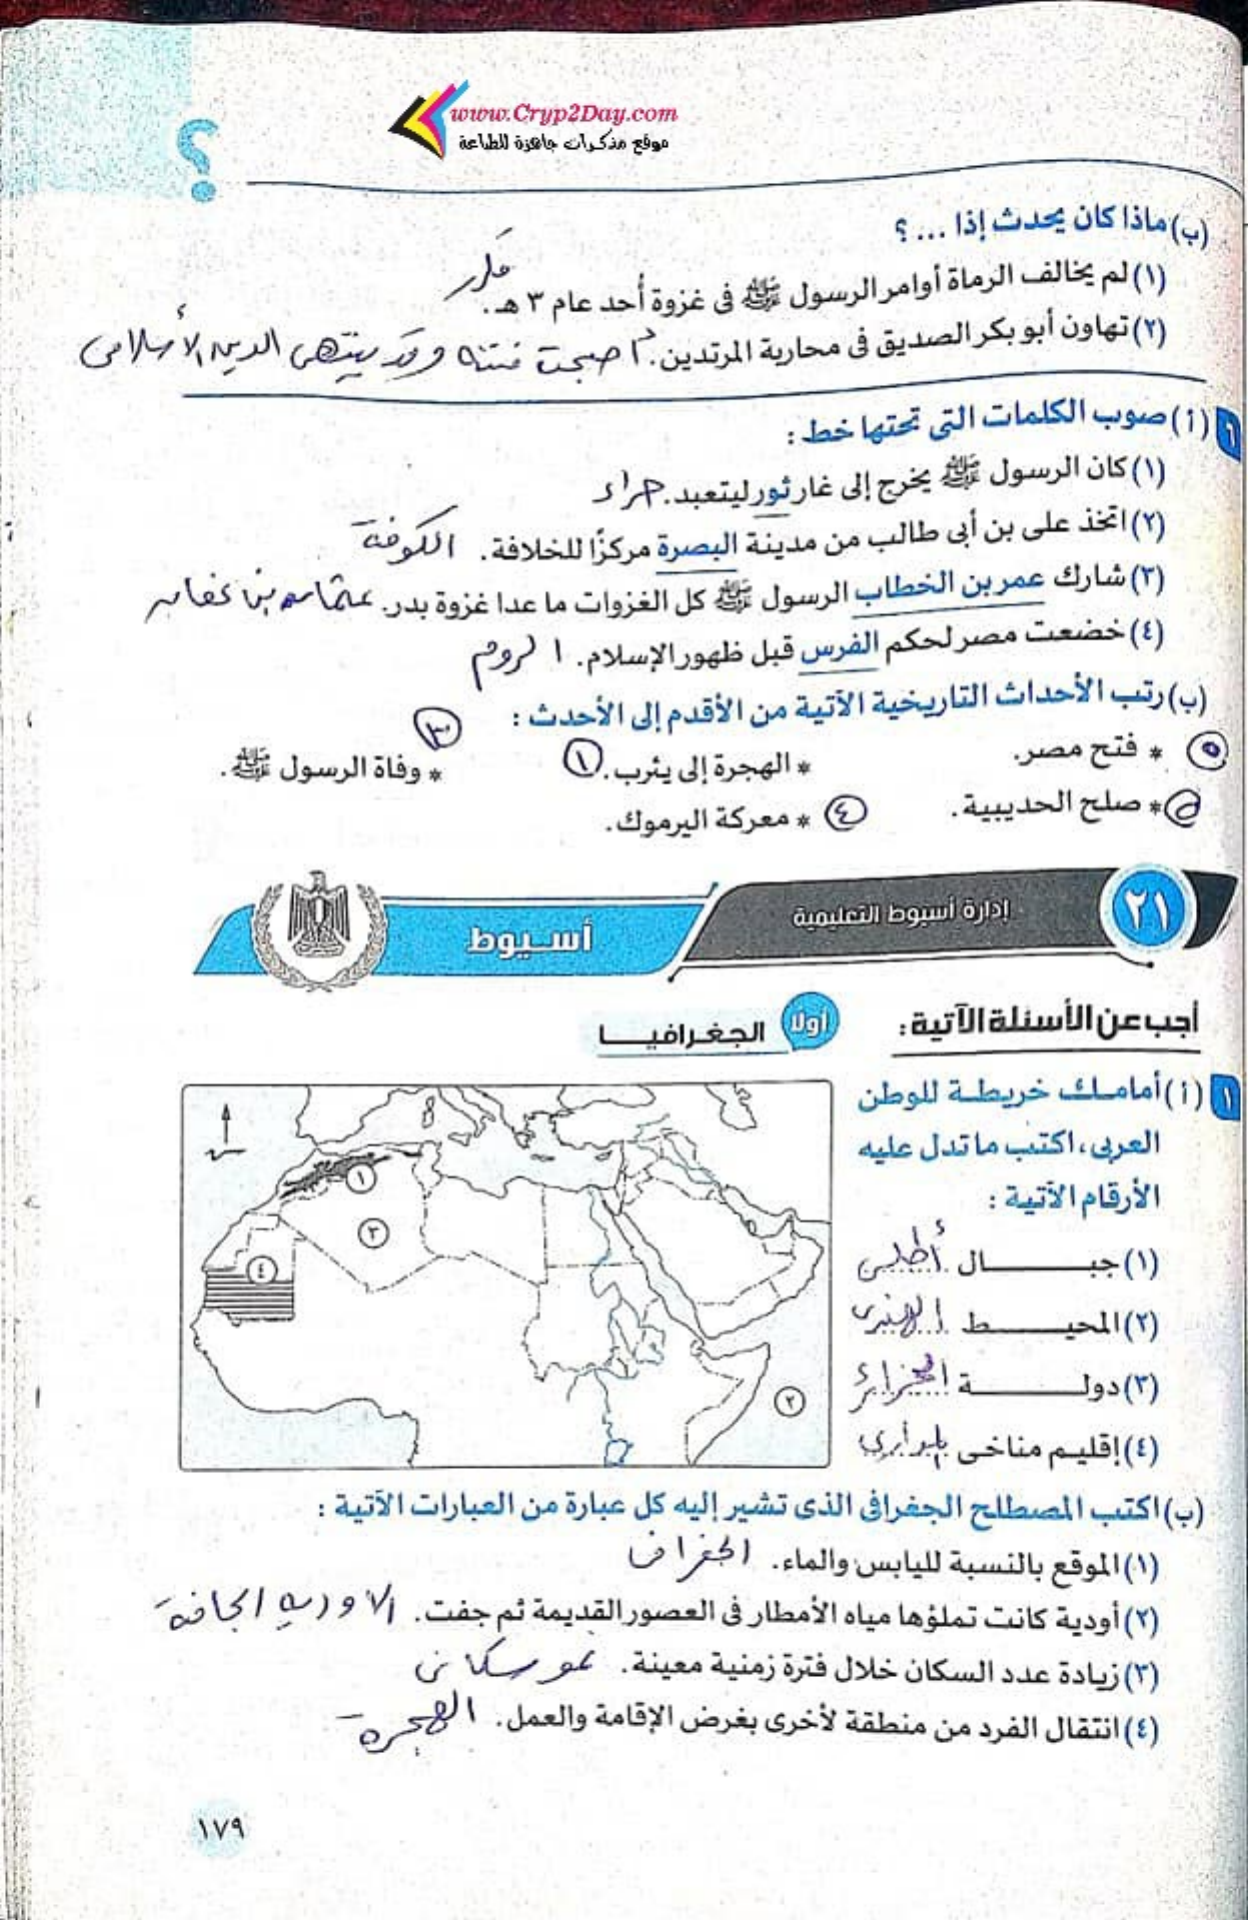 www.Cryp2Day.com
موقع مذكرات جاهزة للطباعة
؟
(ب) ماذا كان يحدث إذا ... ؟
(١) لم يخالف الرماة أوامر الرسول ﷺ فى غزوة أحد عام ٣ هـ. مكرر
(٢) تهاون أبو بكر الصديق فى محاربة المرتدين. أصبحت فتنة وقد ينتهى الدين الأسلامى
٦ (أ) صوب الكلمات التى تحتها خط :
(١) كان الرسول ﷺ يخرج إلى غار ثور ليتعبد. حراء
(٢) اتخذ على بن أبى طالب من مدينة البصرة مركزًا للخلافة. الكوفة
(٣) شارك عمر بن الخطاب الرسول ﷺ كل الغزوات ما عدا غزوة بدر. عثمان بن عفان
(٤) خضعت مصر لحكم الفرس قبل ظهور الإسلام. الروم
(ب) رتب الأحداث التاريخية الآتية من الأقدم إلى الأحدث :
٥ * فتح مصر. * الهجرة إلى يثرب. ١ * وفاة الرسول ﷺ. ٣
٢ * صلح الحديبية. ٤ * معركة اليرموك.
٢١ إدارة أسيوط التعليمية أسيوط
أجب عن الأسئلة الآتية : أولًا الجغرافيا
١ (أ) أمامك خريطة للوطن
العربى، اكتب ما تدل عليه
الأرقام الآتية :
(١) جبال أطلس
(٢) المحيط الهندى
(٣) دولة الجزائر
(٤) إقليم مناخى
١
٣
٤
٢
(ب) اكتب المصطلح الجغرافى الذى تشير إليه كل عبارة من العبارات الآتية :
(١) الموقع بالنسبة لليابس والماء. الجغرافى
(٢) أودية كانت تملؤها مياه الأمطار فى العصور القديمة ثم جفت. الاودية الجافة
(٣) زيادة عدد السكان خلال فترة زمنية معينة. نمو سكانى
(٤) انتقال الفرد من منطقة لأخرى بغرض الإقامة والعمل. الهجرة
١٧٩